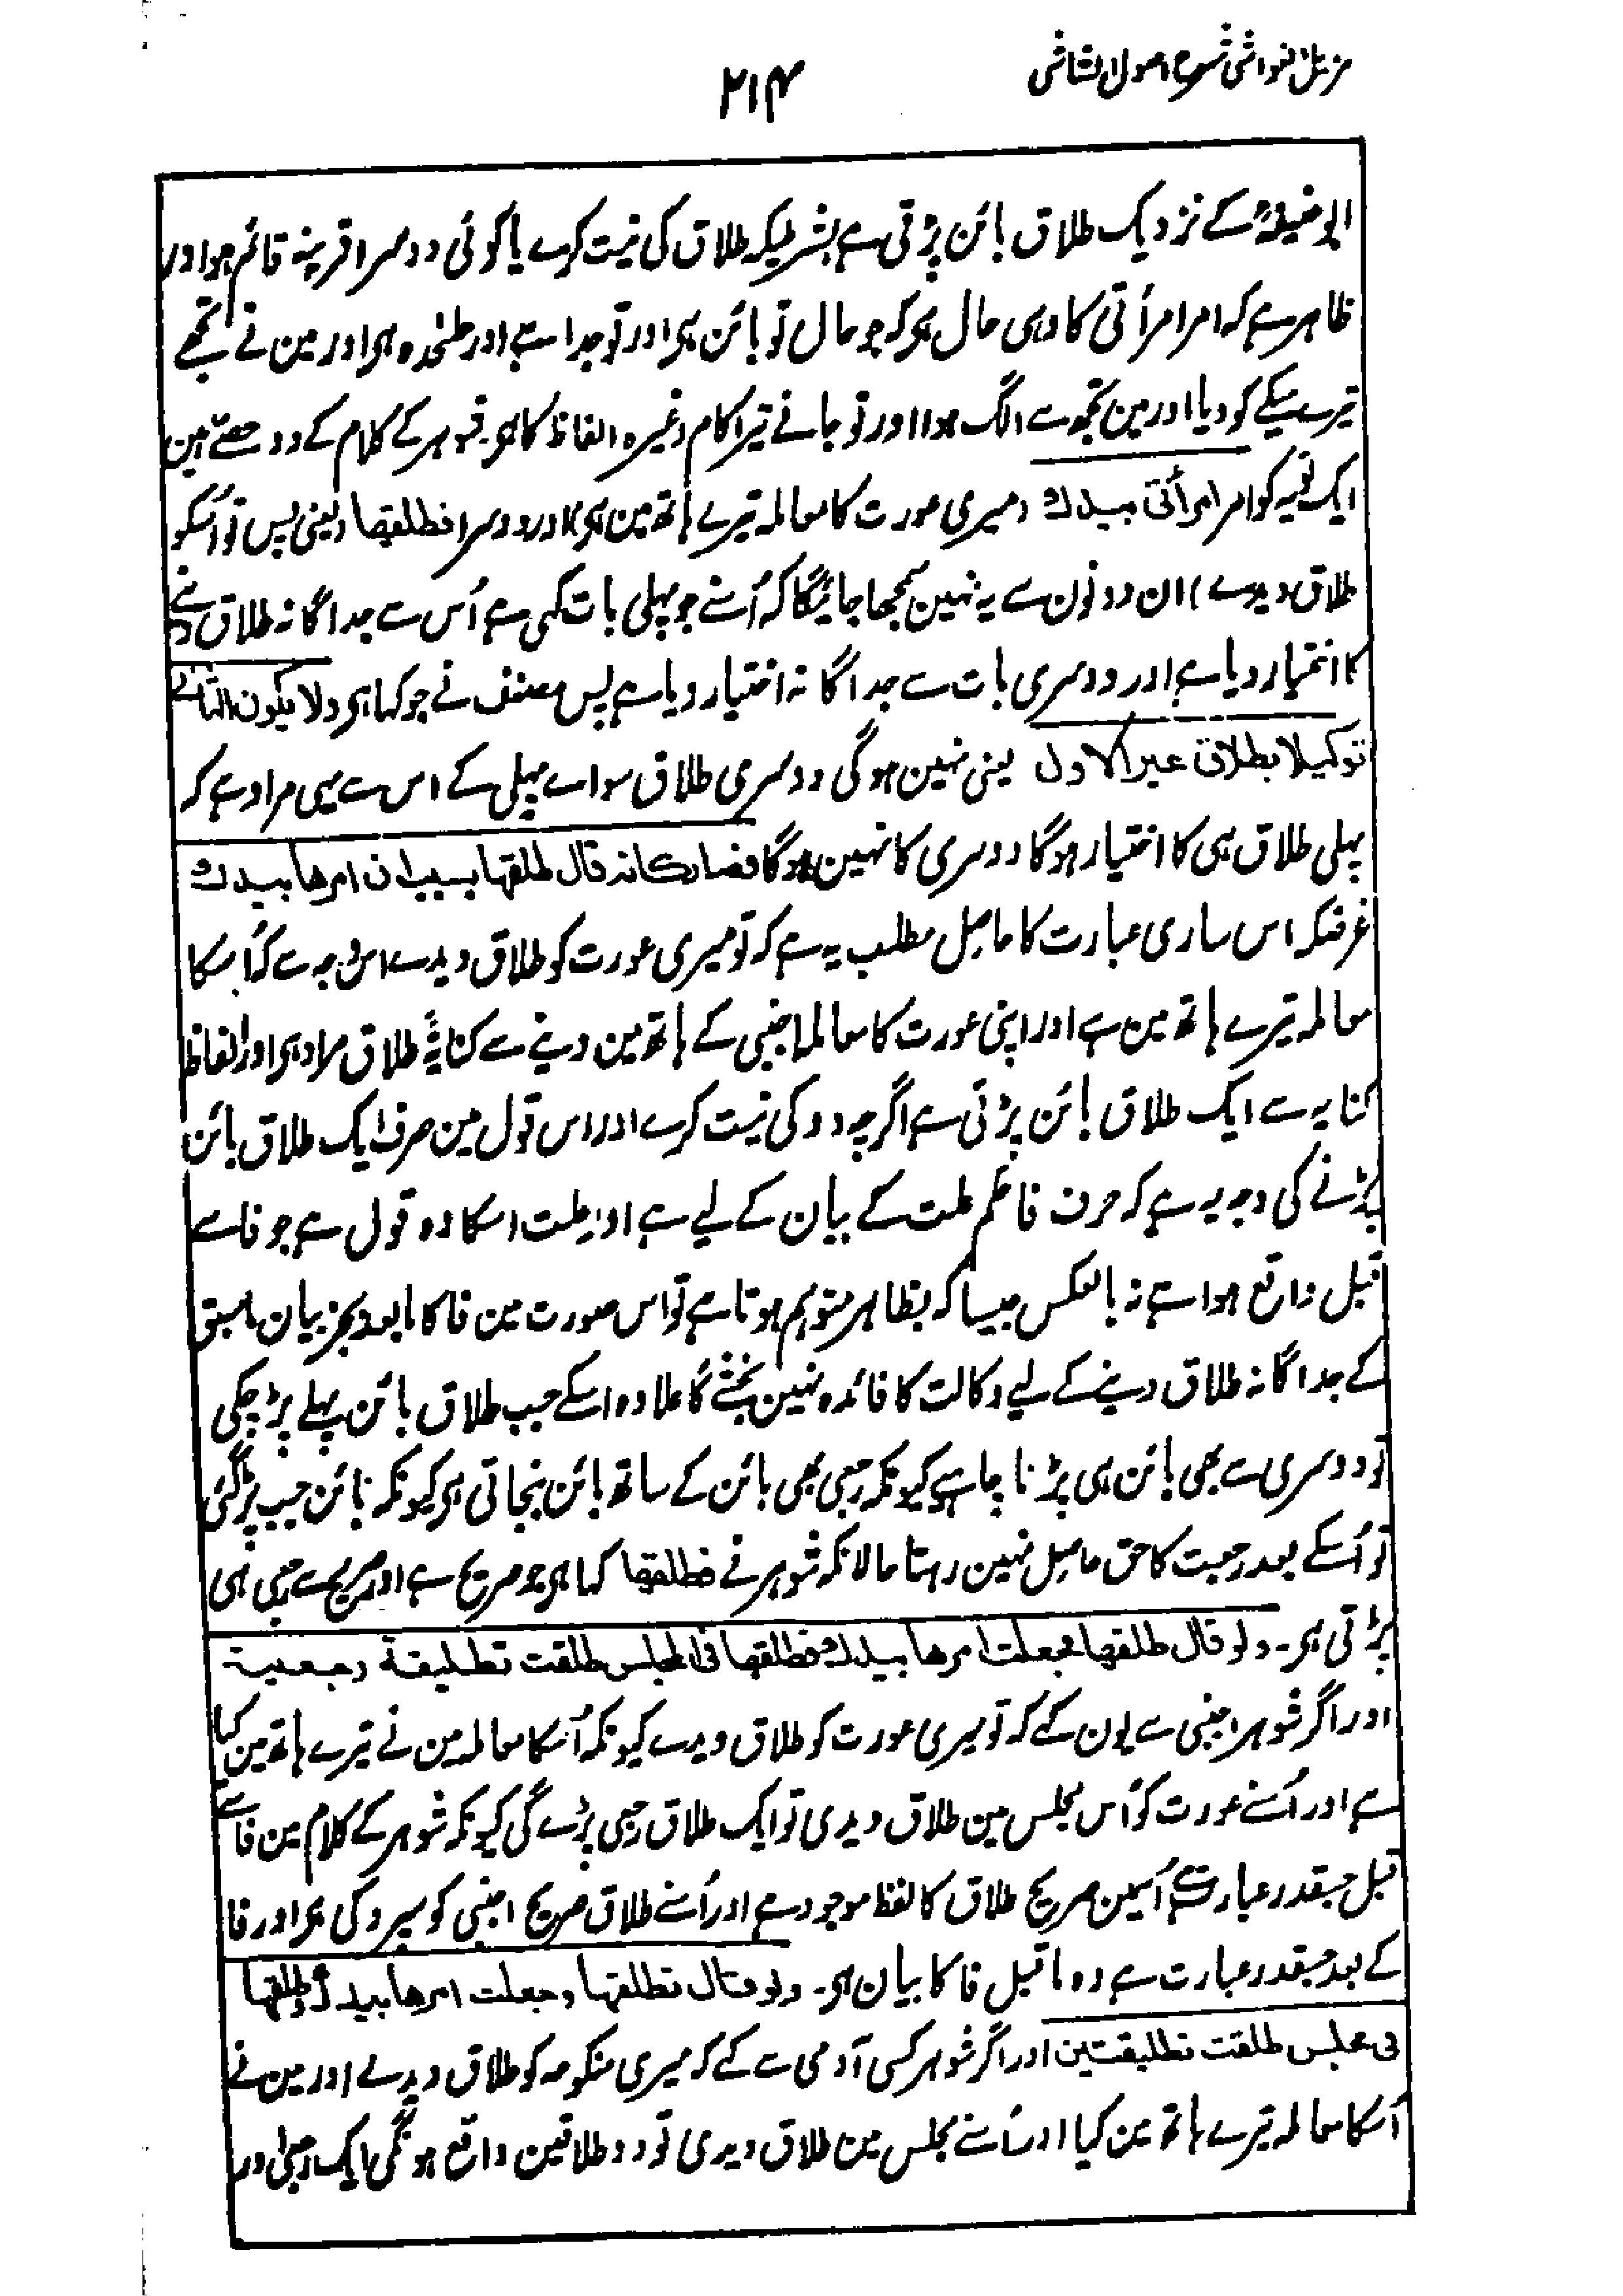 مزیل الغواشی شرح اصول الشاشی
۲۱۴
ابوحنیفہؒ کے نزدیک طلاق بائن پڑتی ہے بشرطیکہ طلاق کی نیت کرے یا کوئی دوسرا قرینہ قائم ہو اور
ظاہر ہے کہ امر امرأتی کا وہی حال ہی کہ جو حال تو بائن ہی اور تو جدا ہے اور علٰحدہ ہی اور مین نے تجھے
تیرے میکے کو دیا اور مین تجھ سے الگ ہوا اور تو جانے تیرا کام وغیرہ الفاظ کا ہی۔ شوہر کے کلام کے دو حصّے ہین
ایک تو یہ کو امر امرأتی بیدك (میری عورت کا معاملہ تیرے ہاتھ مین ہی) اور دوسرا فطلقھا (یعنی پس تو اُسکو
طلاق دیدے) ان دونون سے یہ نہین سمجھا جائیگا کہ اُسنے جو پہلی بات کہی ہے اُس سے جداگانہ طلاق دینے
کا اختیار دیا ہے اور دوسری بات سے جداگانہ اختیار دیا ہے پس مصنف نے جو کہا ہی ولا یکون الثانی
توکیلا بطلاق غیر الاول یعنی نہین ہوگی دوسری طلاق سواے پہلی کے اس سے یہی مراد ہے کہ
پہلی طلاق ہی کا اختیار ہوگا دوسری کا نہین ہوگا فصار کانہ قال طلقھا بسبب ان امرھا بیدك
غرضکہ اس ساری عبارت کا حاصل مطلب یہ ہے کہ تو میری عورت کو طلاق دیدے اس وجہ سے کہ اُسکا
معاملہ تیرے ہاتھ مین ہے اور اپنی عورت کا معاملہ اجنبی کے ہاتھ مین دینے سے کنایۃً طلاق مراد ہی اور الفاظ
کنایہ سے ایک طلاق بائن پڑتی ہے اگرچہ دو کی نیت کرے اور اس قول مین صرف ایک طلاق بائن
پڑنے کی وجہ یہ ہے کہ حرف فا حکم علت کے بیان کے لیے ہے اور علت اسکا وہ قول ہے جو فا سے
قبل واقع ہوا ہے نہ بالعکس جیسا کہ بظاہر متوہم ہوتا ہے تو اس صورت مین فا کا مابعد بجز بیان ماسبق
کے جداگانہ طلاق دینے کے لیے وکالت کا فائدہ نہین بخشے گا علاوہ اسکے جب طلاق بائن پہلے پڑ چکی
تو دوسری سے بھی بائن ہی پڑنا چاہیے کیونکہ رجعی بھی بائن کے ساتھ بائن بنجاتی ہی کیونکہ بائن جب پڑگئی
تو اُسکے بعد رجعت کا حق حاصل نہین رہتا حالانکہ شوہر نے فطلقھا کہا ہی جو صریح ہے اور صریح سے رجعی ہی
پڑتی ہی۔ ولو قال طلقھا فجعلت امرھا بیدك فطلقھا فی المجلس طلقت تطلیقة رجعیة
اور اگر شوہر اجنبی سے یون کہے کہ تو میری عورت کو طلاق دیدے کیونکہ اُسکا معاملہ مین نے تیرے ہاتھ مین کیا
ہے اور اُسنے عورت کو اُس مجلس مین طلاق دیدی تو ایک طلاق رجعی پڑے گی کیونکہ شوہر کے کلام مین فا سے
قبل جسقدر عبارت ہے اُسمین صریح طلاق کا لفظ موجود ہے اور اُسنے طلاق صریح اجنبی کو سپرد کی ہی اور فا
کے بعد جسقدر عبارت ہے وہ ماقبل فا کا بیان ہی۔ ولو قال طلقھا وجعلت امرھا بیدك وطلقھا
فی مجلس طلقت تطلیقتین اور اگر شوہر کسی آدمی سے کہے کہ میری منکوحہ کو طلاق دیدے اور مین نے
اُسکا معاملہ تیرے ہاتھ مین کیا اور اُسنے مجلس مین طلاق دیدی تو دو طلاقین واقع ہونگی ایک رجعی اور